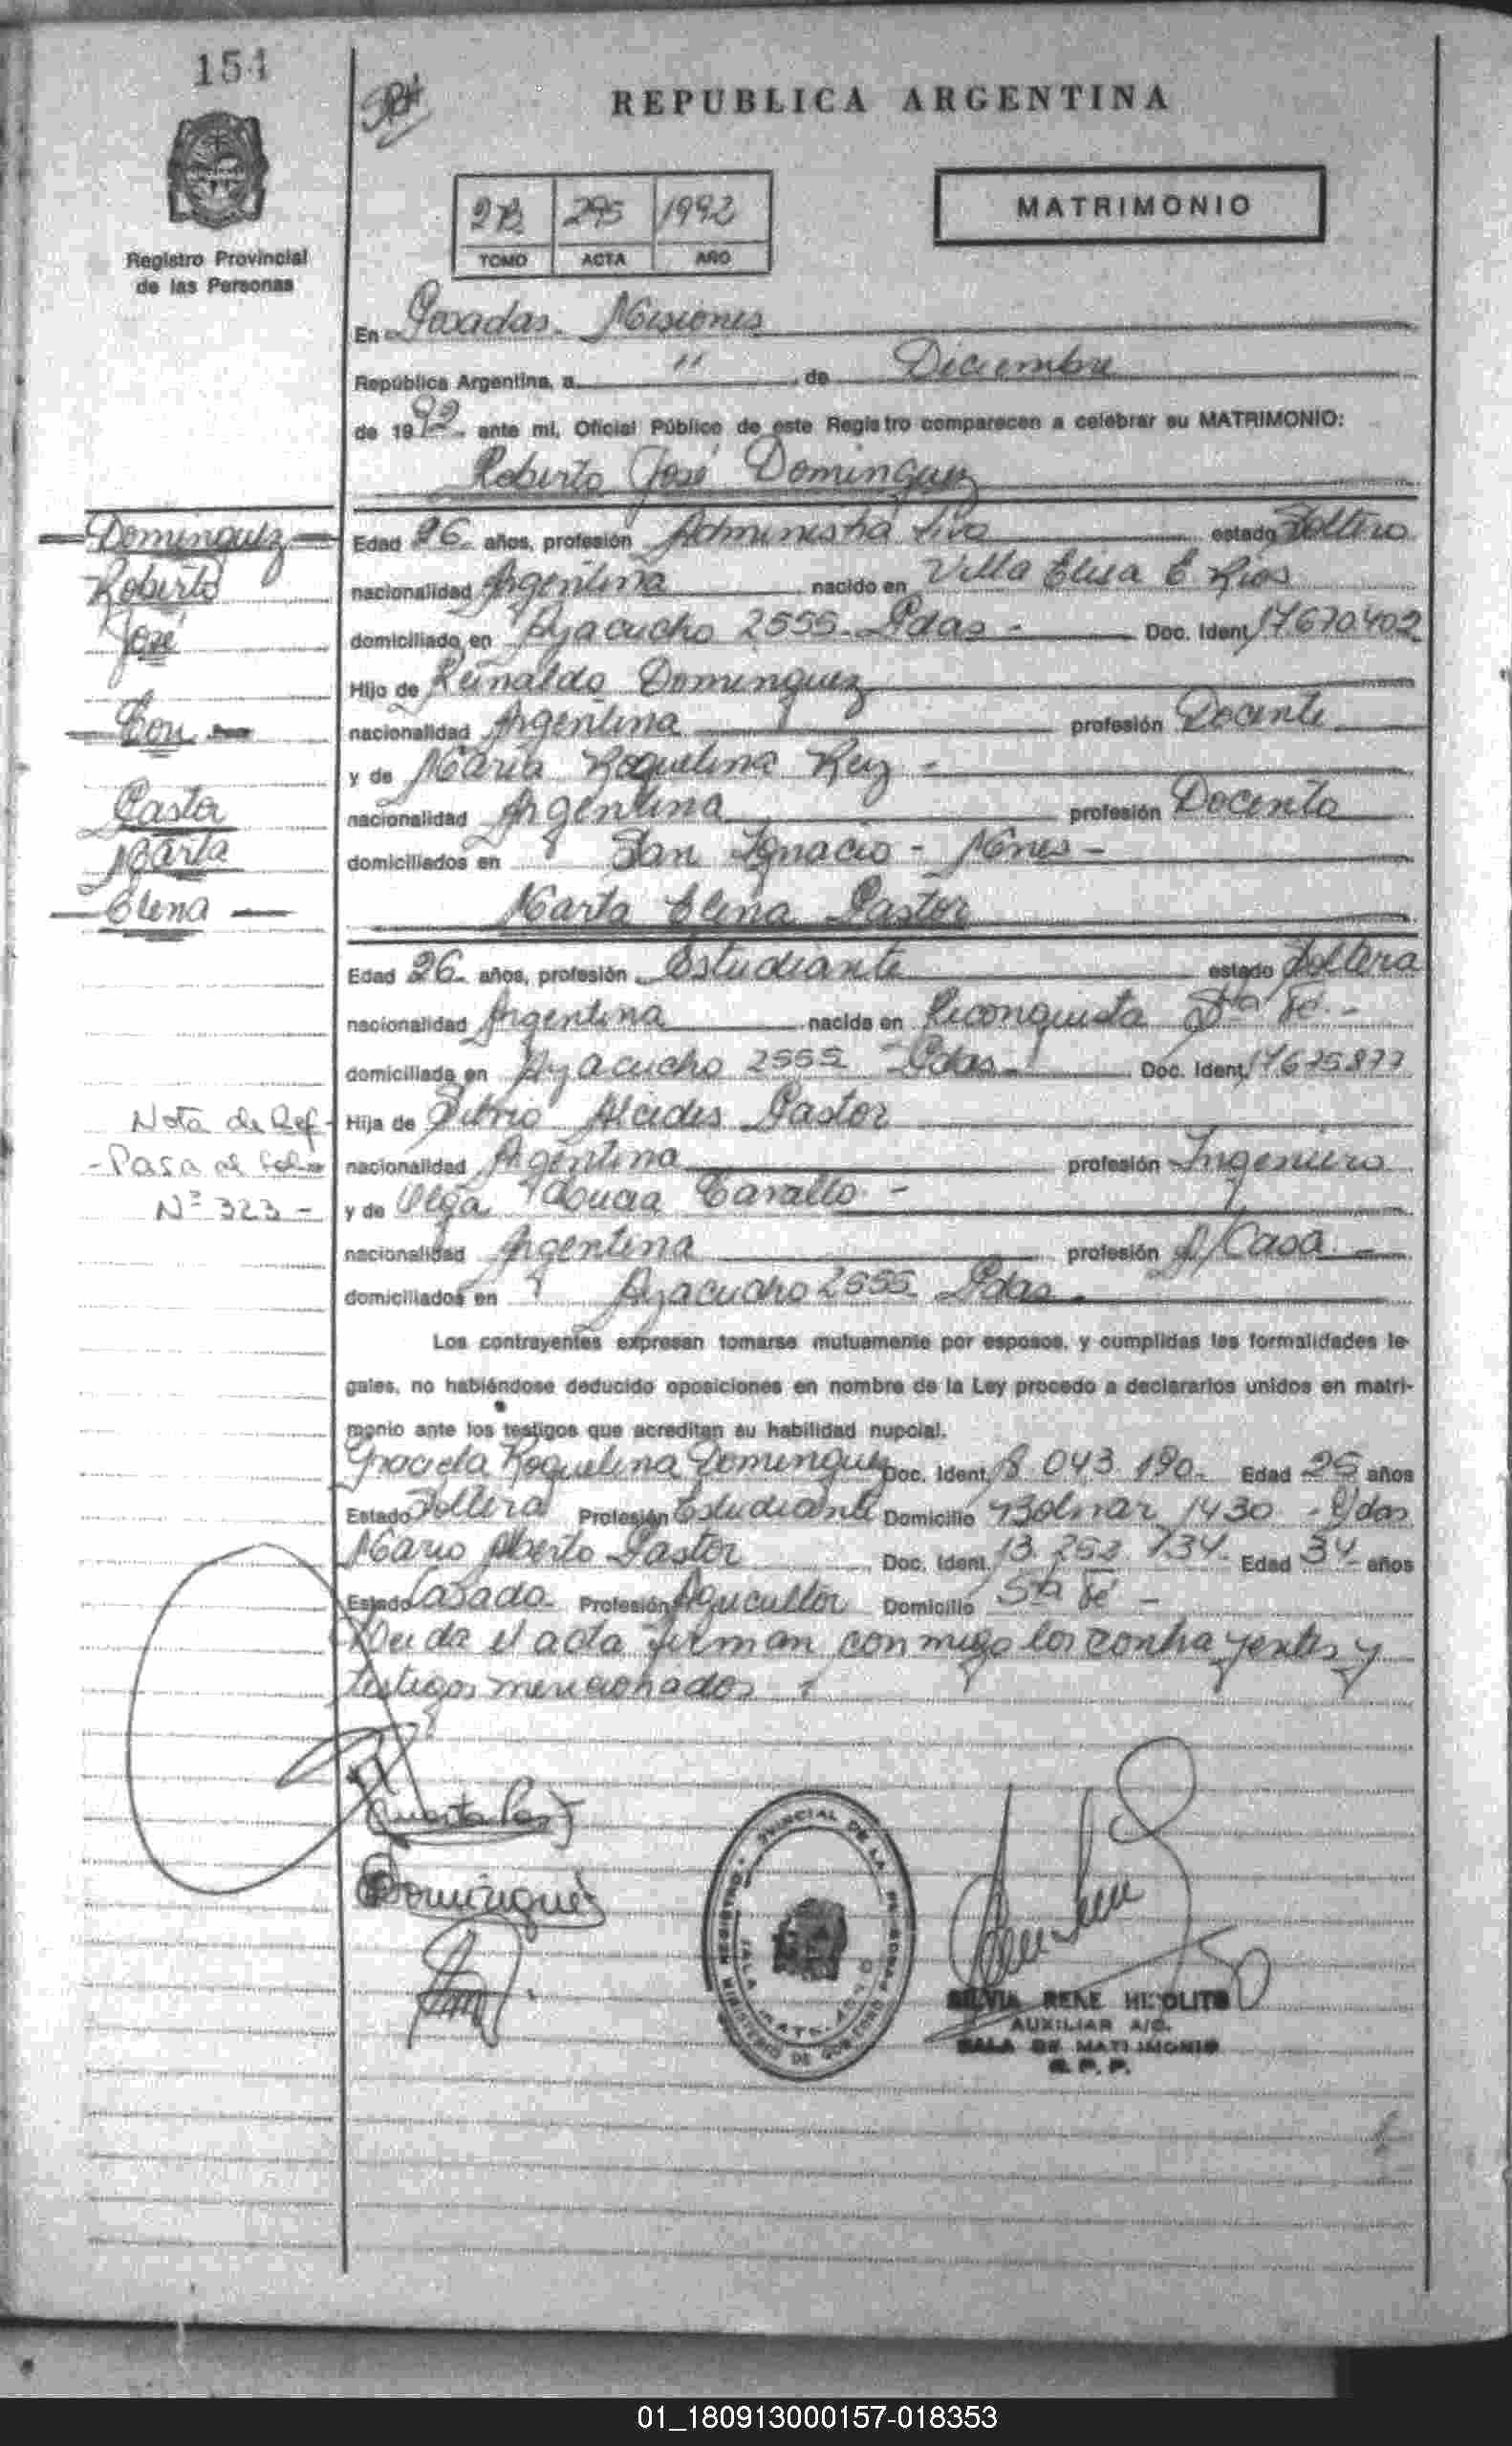 154
REPUBLICA ARGENTINA
2B 295 1992
TOMO ACTA AÑO
MATRIMONIO
Registro Provincial
de las Personas
En Posadas. Misiones
República Argentina, a 11 de Diciembre
de 1992 ante mí, Oficial Público de este Registro comparecen a celebrar su MATRIMONIO:
Roberto José Dominguez
Dominguez
Roberto
José
Con
Pastor
Marta
Elena
Edad 26 años, profesión Administrativo estado Soltero
nacionalidad Argentina nacido en Villa Elisa E. Rios
domiciliado en Ayacucho 2555 Pdas - Doc. Ident. 17670402
Hijo de Reinaldo Dominguez
nacionalidad Argentina profesión Docente
y de Maria Roquelina Ruiz -
nacionalidad Argentina profesión Docente
domiciliados en San Ignacio - Mnes -
Marta Elena Pastor
Edad 26 años, profesión Estudiante estado Soltera
nacionalidad Argentina nacida en Reconquista Sta Fé. -
domiciliada en Ayacucho 2555 Pdas - Doc. Ident. 17675877
Nota de Ref -
- Pasa al folio
Nº 323 -
Hija de Silvio Alcides Pastor
nacionalidad Argentina profesión Ingeniero
y de Olga Lucia Cavallo -
nacionalidad Argentina profesión A/Casa -
domiciliados en Ayacucho 2555 Pdas.
Los contrayentes expresan tomarse mutuamente por esposos, y cumplidas las formalidades le-
gales, no habiéndose deducido oposiciones en nombre de la Ley procedo a declararlos unidos en matri-
monio ante los testigos que acreditan su habilidad nupcial.
Graciela Roquelina Dominguez Doc. Ident. 18.043.190. Edad 25 años
Estado Soltera Profesión Estudiante Domicilio Bolivar 1430 - Pdas
Mario Alberto Pastor Doc. Ident. 13.252.134. Edad 34 años
Estado Casado. Profesión Agricultor Domicilio Sta Fé -
Leida el acta firman conmigo los contrayentes y
testigos mencionados
Dominguez
SILVIA RENE HIPOLITO
AUXILIAR A/C.
SALA DE MATRIMONIO
R. P. P.
01_180913000157-018353